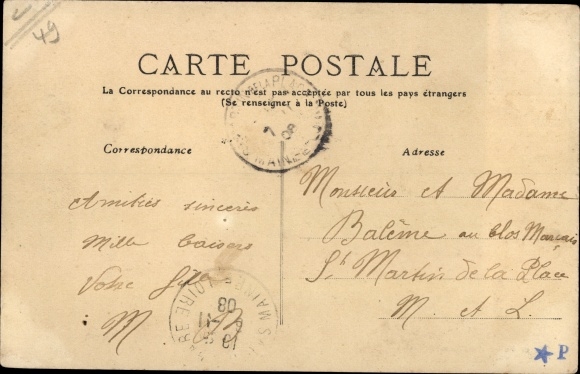 49
CARTE POSTALE
La Correspondance au recto n'est pas acceptée par tous les pays étrangers
(Se renseigner à la Poste)
Correspondance
Amitiés sincères
Mille baisers
Votre fille
M
Adresse
Monsieur et Madame
Balème au Clos Marçais
St Martin de la Place
M. et L.
MAINE
7
08
MAINE-LOIRE
11
08
P